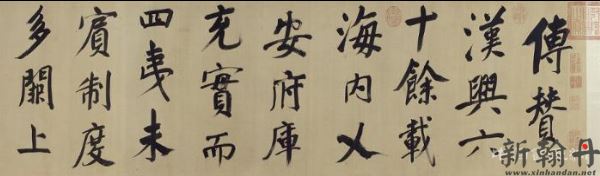 傳贊
漢興六
十餘載
海内乂
安府庫
充實而
四夷未
賓制度
多闕上
新翰丹
www.xinhandan.net